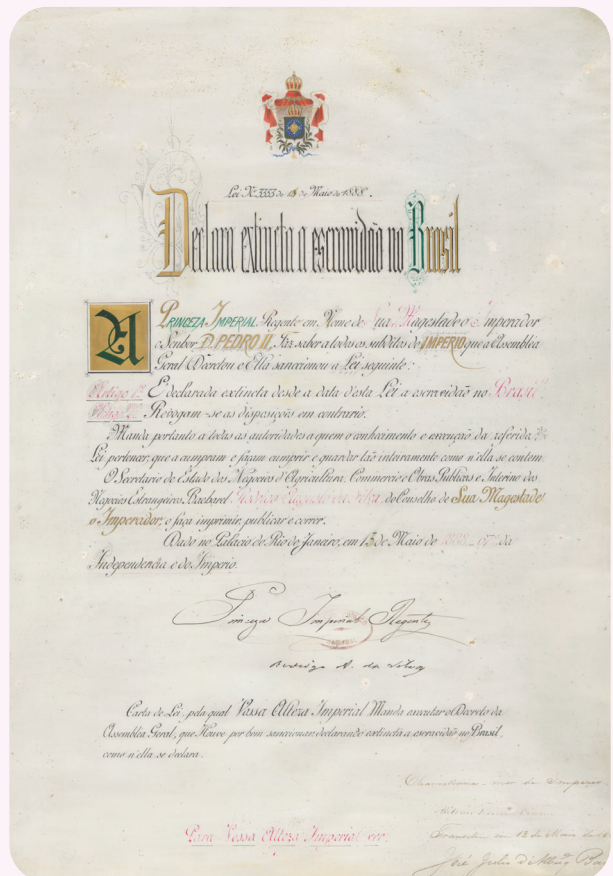 Lei Nº 3353 de 13 de Maio de 1888.
Declara extincta a escravidão no Brasil
A PRINCEZA IMPERIAL Regente em Nome de Sua Magestade o Imperador
o Senhor D. PEDRO II, Faz saber a todos os subditos do IMPERIO que a Assembléa
Geral Decretou e Ella sanccionou a Lei seguinte:
Artigo 1º É declarada extincta desde a data d'esta Lei a escravidão no Brasil.
Revogam-se as disposições em contrario.
Manda portanto a todas as autoridades a quem o conhecimento e execução da referida
Lei pertencer, que a cumpram e façam cumprir e guardar tão inteiramente como n'ella se contem.
O Secretario de Estado dos Negocios d'Agricultura, Commercio e Obras Publicas e Interino dos
Negocios Estrangeiros, Bacharel Rodrigo Augusto da Silva, do Conselho de Sua Magestade
o Imperador, o faça imprimir publicar e correr.
Dado no Palacio do Rio de Janeiro, em 13 de Maio de 1888 - 67º da
Independencia e do Imperio.
Princeza Imperial Regente
Rodrigo A. da Silva
Carta de Lei, pela qual Vossa Alteza Imperial Manda executar o Decreto da
Assembléa Geral, que Houve por bem sanccionar declarando extincta a escravidão no Brasil,
como n'ella se declara.
Chancellaria-mór do Imperio
Para Vossa Alteza Imperial ver.
Transitou em 13 de Maio de
José Julio d'Albuq